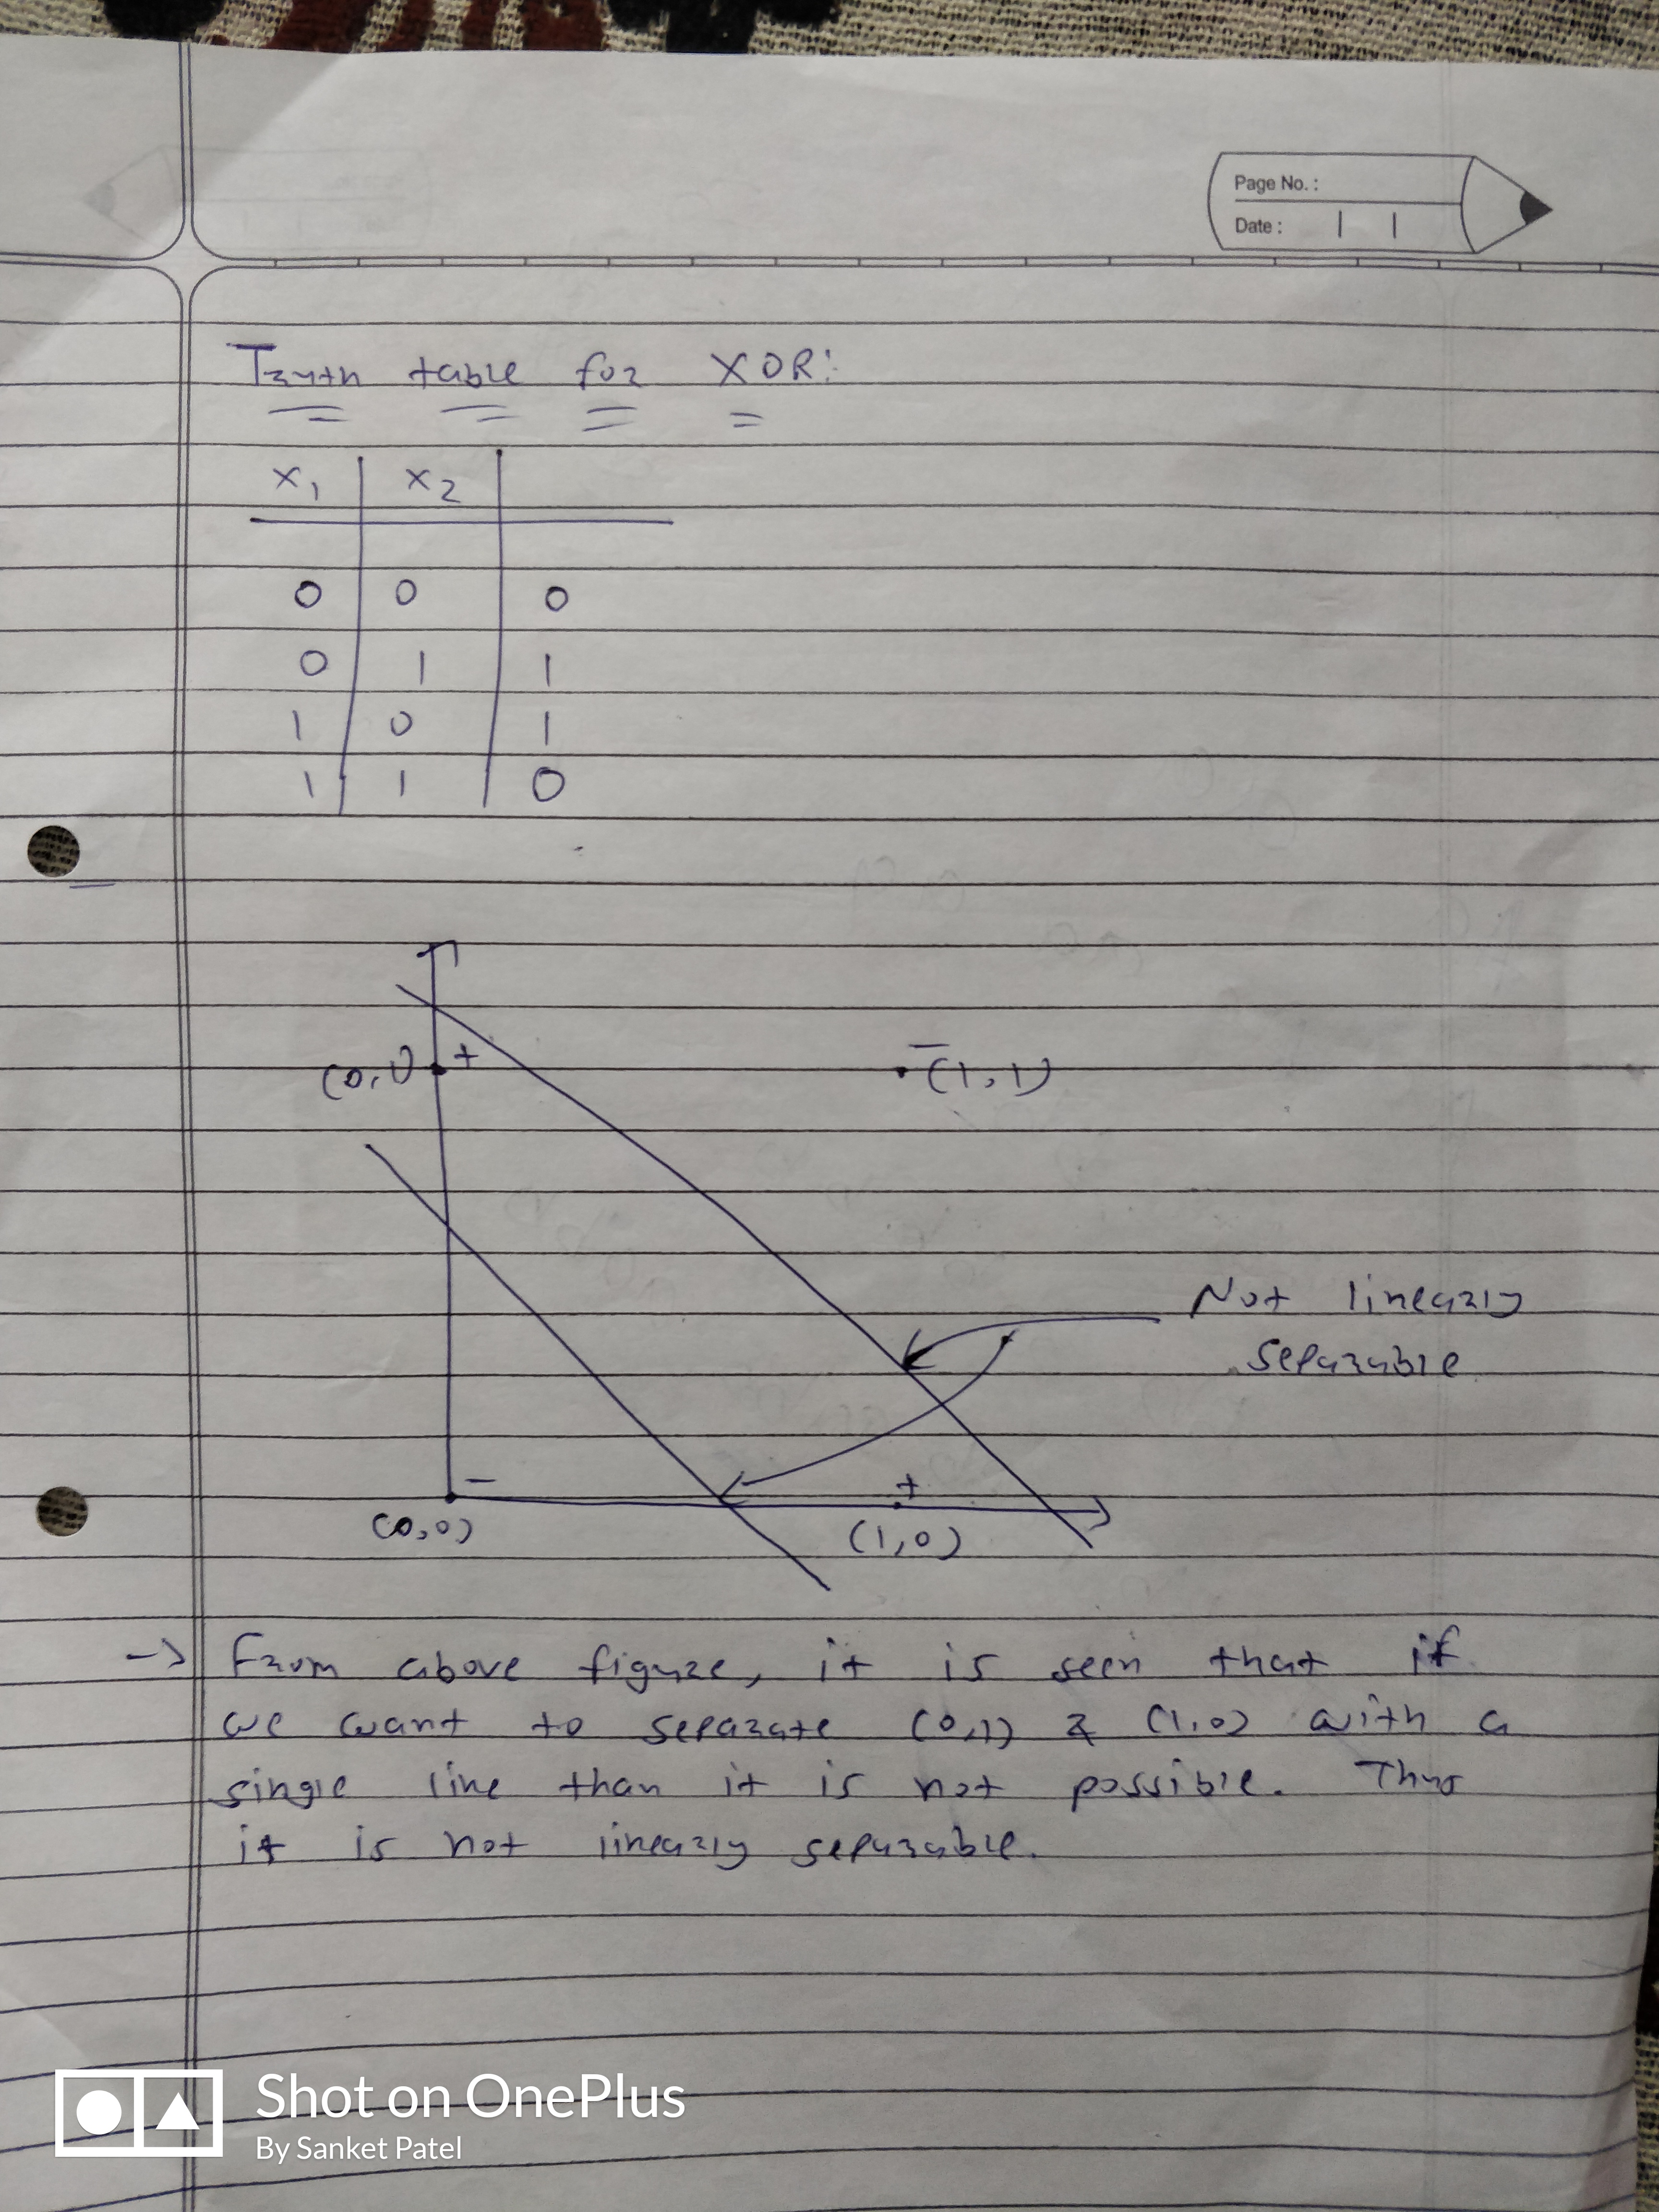 Page No. :
Date :
Truth table for XOR:
x1 x2
0 0 0
0 1 1
1 0 1
1 1 0
(0,1) +
- (1,1)
Not linearly
separable
- +
(0,0) (1,0)
-> From above figure, it is seen that if
we want to separate (0,1) & (1,0) with a
single line than it is not possible. Thus
it is not linearly separable.
Shot on OnePlus
By Sanket Patel